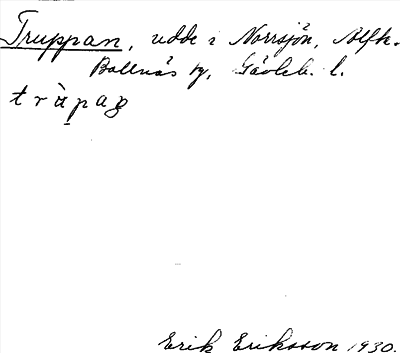 Truppan, udde i Norrsjön, Alfk.
Bollnäs sn, Gävleb. l.
Erik Eriksson 1930.